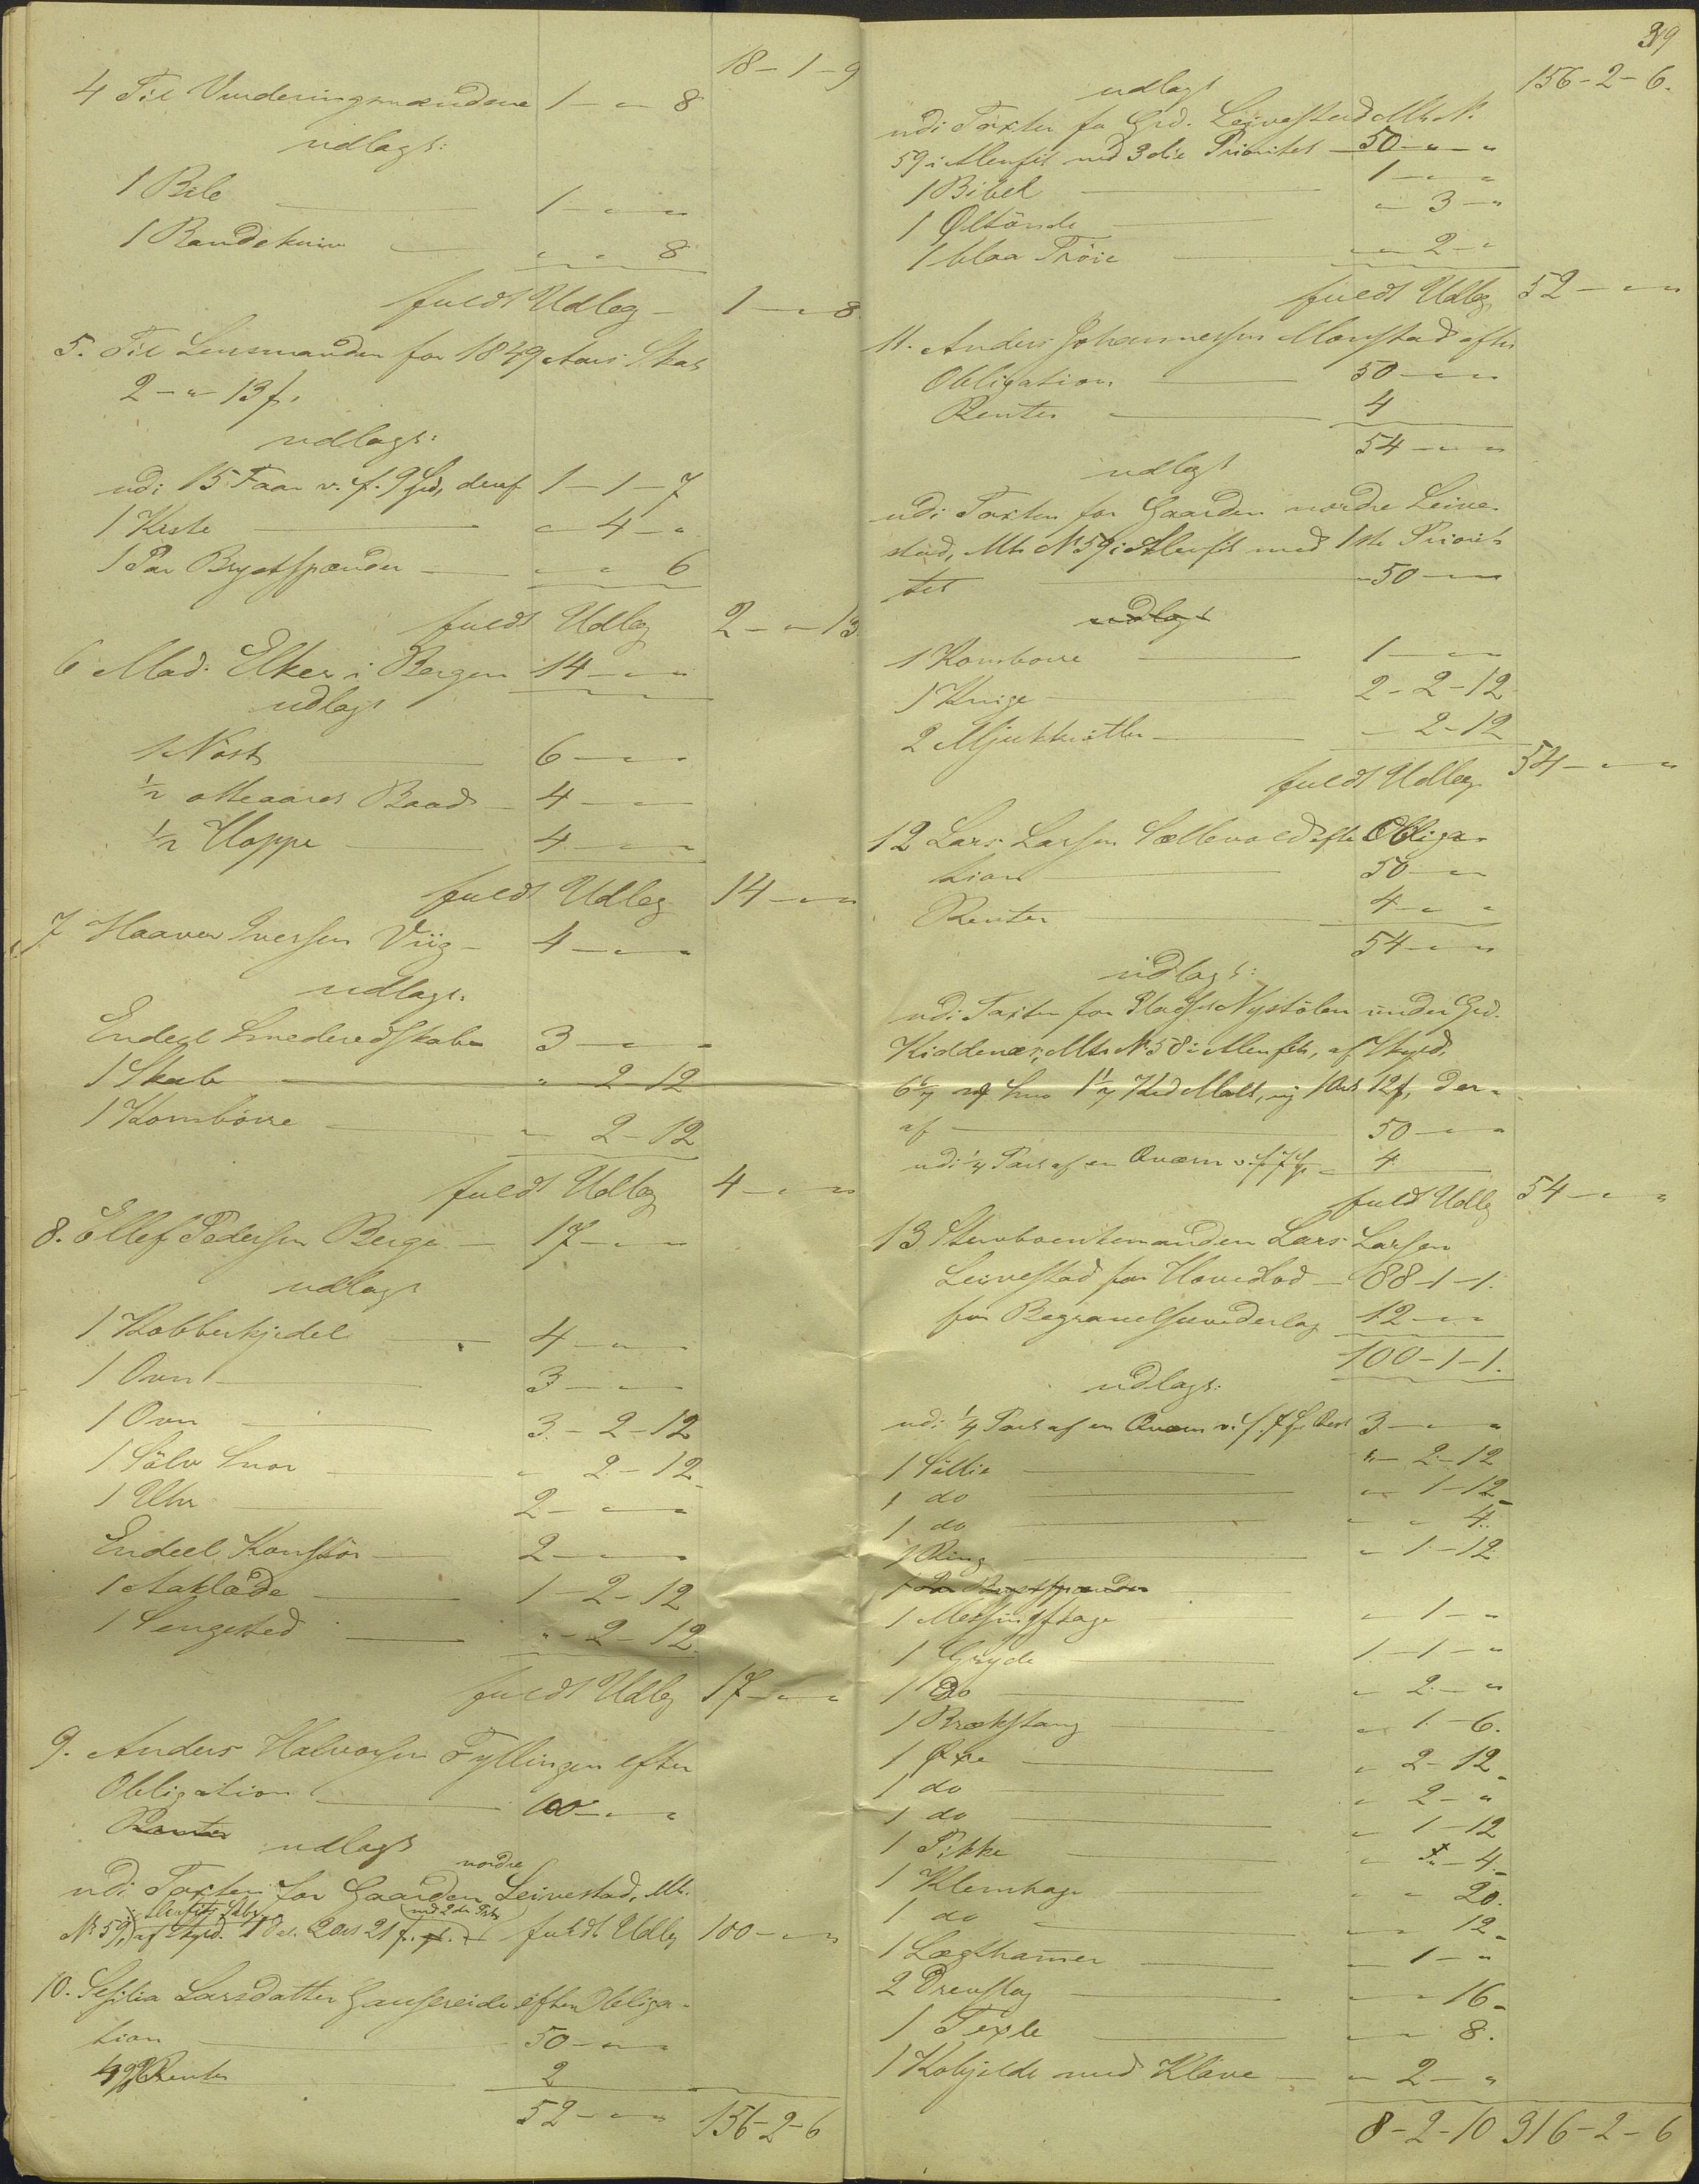 18 - 1 - 9
4 Til Vurderingsmændene 1 - " 8
udlagt:
1 Bile 1 - " - "
1 Bandekniv " - " 8
fuldt Udlæg - 1 - " 8
5. Til Lensmanden for 1849 Aars Skat
2 - " 13 s.
udlagt:
udi 15 Faar v. f. 9 Spd, deraf 1 - 1 - 7
1 Kiste " 4 - "
1 Par Brystspænder " - " 6
fuldt Udlæg 2 - " 13
6 Mad: Elker i Bergen 14 - " - "
udlagt
1 Nöst 6 - " - "
1/2 otteaaret Baad 4 - " - "
1/2 Hoppe 4 - " - "
fuldt Udlæg 14 - " - "
7 Haaver Iversen Viig - 4 - " - "
udlagt.
Endeel Smederedskaber 3 - " - "
1 Skab " - 2 - 12
1 Kornbörre " 2 - 12
fuldt Udlæg 4 - " - "
8. Ellef Pedersen Berge - 17 - " - "
udlagt
1 Kobberkjedel 4 - " - "
1 Ovn 3 - " - "
1 Ovn 3 - 2 - 12
1 Sölv Snor " 2 - 12
1 Uhr 2 - " - "
Endeel 2 - " - "
1 Aaklæde 1 - 2 - 12
1 Sengested " - 2 - 12
fuldt Udlæg 17 - " - "
9. Anders Halvorsen Fyllingen efter
Obligation 100 - " - "
Renter udlagt
nordre
udi Taxten for Gaarden Leivestad, Mtr.
med 2den Prts
No 59, af Skyld. 1 Dal. 2 Ort 21 s. fuldt Udlæg 100 - " - "
10. Sesilia Larsdatter Gausereide efter Obliga-
tion 50 - " - "
Renter 2
52 - " - " 156 - 2 - 6
39
156 - 2 - 6.
udlagt
udi Taxten for Grd. Leivestad Mtr. N.
59 i Alenfit med 3die Prioritet - 50 - " - "
1 Bibel 1 - " - "
1 Öltönde " 3 - "
1 blaa Tröie " 2 - "
fuldt Udlæg 52 - " - "
11. Anders Johannessen Monstad efter
Obligation 50 - " - "
Renter 4
54 - " - "
udlagt
udi Taxten for Gaarden nordre Leive-
stad, Mtr No 59 i Alenfit med 1ste Priori-
tet 50 - " - "
udlagt
1 Kornbörre 1 - " - "
1 Kvige 2 - 2 - 12
2 " 2 - 12
fuldt Udlæg 54 - " - "
12 Lars Larsen Sellevold efter Obliga-
tion 50 - " - "
Renter 4 - " - "
54 - " - "
udlagt:
udi Taxten for Pladsen Nystölen under Grd.
Kiddenæs, Mtr No 58 i Alenfit, af Skyld,
der-
af 50 - " - "
udi 1/4 Part af en Qværn v. f. 7 Sp. 4
fuldt Udlæg 54 - " - "
13 Stervboenkemanden Lars Larsen
Leivestad for Hovedlod - 88 - 1 - 1.
for Begravelsesvederlag 12 - " - "
100 - 1 - 1.
udlagt:
udi 1/4 Part af en Qværn v. f. 7 Sp. Rest 3 - " - "
1 Söllie " - 2 - 12
1 do " 1 - 12
1 do " - " 4
1 Ring " 1 - 12
1 Par Brystspænder
1 Messingstage " 1 - "
1 Gryde 1 - 1 - "
1 Do " 2 - "
1 Brækstang " 1 - 6.
1 Öxe " 2 - 12
1 do " 2 - "
1 do " 1 - 12
1 Pikke " - 4
1 Klemhage " " 20.
1 do " 12
1 Lægthammer " 1 - "
2 " - " 16
1 Texle " - " 8.
1 Kobjelde med Klave " 2 - "
8 - 2 - 10 316 - 2 - 6